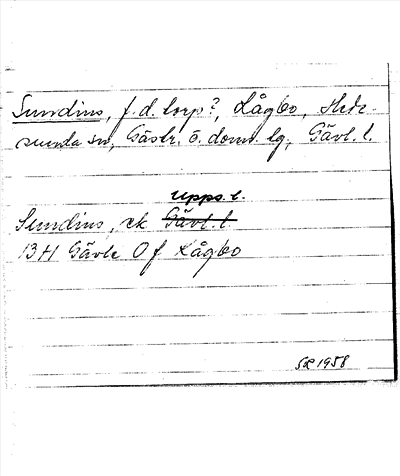 Sundins, f.d. torp?, Lågbo, Hede-
sunda sn, Gästr. ö. doms. lg, Gävl. l.
Upps. l.
Sundins, ek Gävl. l.
13H Gävle Of Lågbo
SL 1958